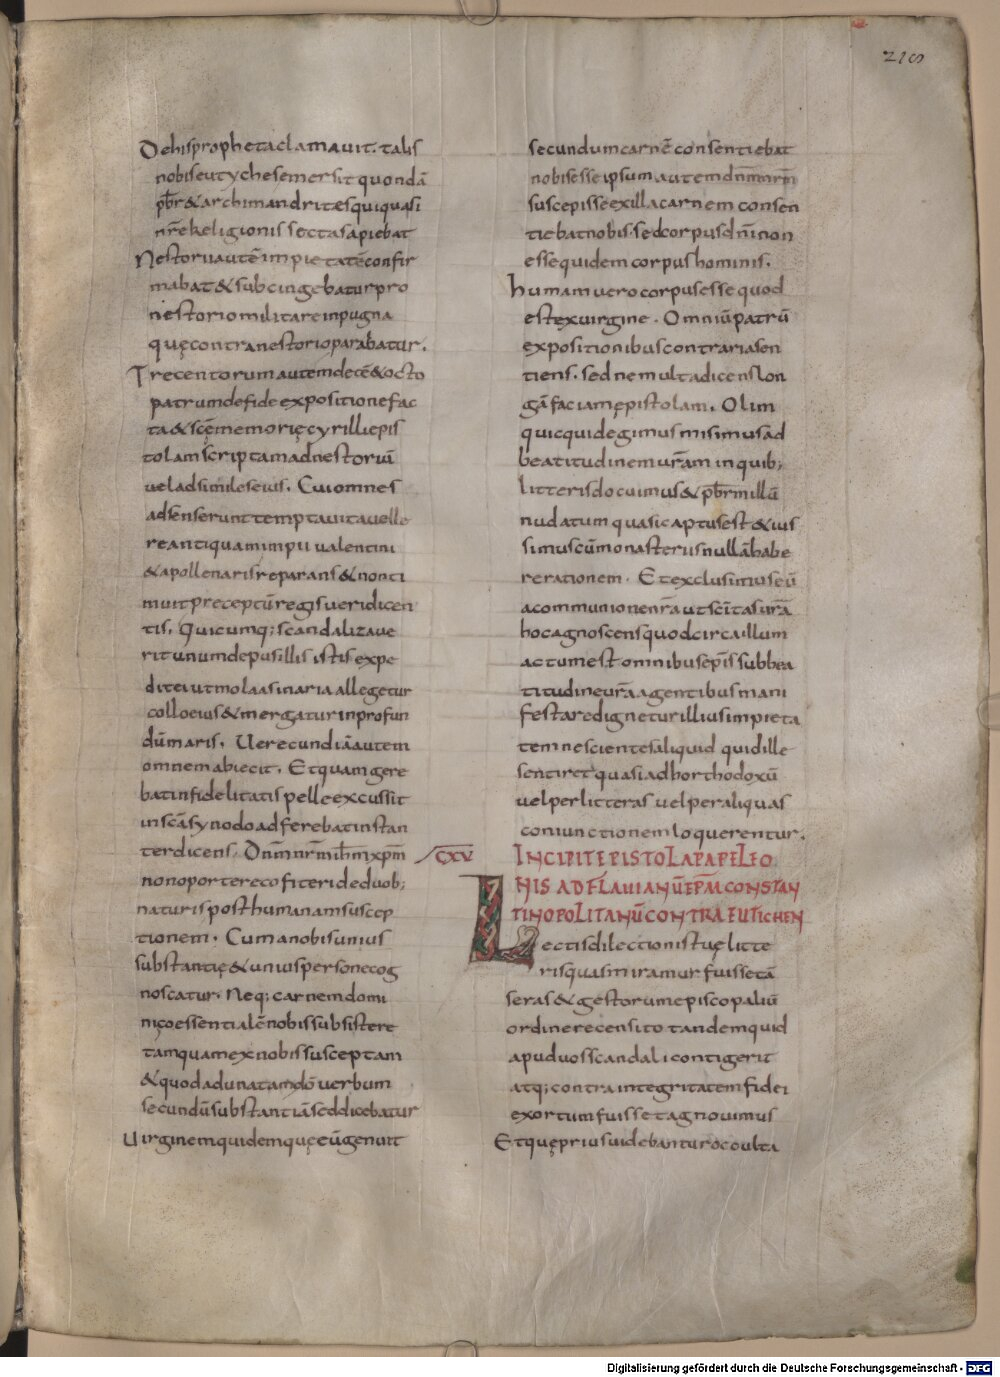 218
De his propheta clamauit. talis
nobis eutyches emersit quondā
pb̄r & archimandrites qui quasi
nr̄e religionis secta sapiebat
Nestorii autē impietatē confir
mabat & subcingebatur pro
nestorio militare in pugna
quę contra nestorio parabatur.
Trecentorum autem decē & octo
patrum de fide expositione fac
ta & scę̄ memorię cyrilli epis
tolam scriptam ad nestoriū
uel ad similes eius. Cui omnes
adsenserunt temptauit auelle
re antiquam impii ualentini
& apollenaris reparans & non ti
muit preceptū regis ueri dicen
tis. Quicumq; scandalizaue
rit unum de pusillis istis expe
dit ei ut mola asinaria allegetur
collo eius & mergatur in profun
dū maris. Uerecundiā autem
omnem abiecit. Et quam gere
bat infidelitatis pelle excussit
in scā synodo adferebat instan
ter dicens. Dn̄m nr̄m ih̄m xp̄m
non oportere cofiteri de duob;
naturis post humanam suscep
tionem. Cum a nobis unius
substantię & unius persone cog
noscatur. Neq; carnem domi
nico essentialē nobis subsistere
tamquam ex nobis susceptam
& quod adunatam dō uerbum
secundū substantiā sed dicebatur
Uirginem quidem quę eū genuit
secundum carnē consentiebat
nobis esse ipsum autem dn̄m nr̄m
suscepisse ex illa carnem consen
tiebat nobis. sed corpus dn̄i non
esse quidem corpus hominis.
humam uero corpus esse quod
est ex uirgine. Omniū patrū
expositionibus contraria sen
tiens. sed ne multa dicens lon
gā faciam epistolam. Olim
quicquid egimus misimus ad
beatitudinem ur̄am in quib;
litteris docuimus & pb̄rm illū
nudatum quasi captus est & ius
simus cū monasteriis nullā habe
re rationem. Et exclusimus eū
a communione nr̄a ut scītas ur̄a
hoc agnoscens quod circa illum
actum est omnibus ep̄is sub bea
titudine ur̄a agentibus mani
festare dignetur illius impieta
tem nescientes aliquid quid ille
sentiret quasi ad horthodoxū
uel per litteras uel per aliquas
coniunctionem loquerentur.
CXV INCIPIT EPISTOLA PAPE LEO
NIS AD FLAUIANŪ EPM̄ CONSTAN
TINOPOLITANŪ CONTRA EUTICHEN
Lectis dilectionis tuę litte
ris quas miramur fuisse tā
seras & gestorum episcopaliū
ordine recensito tandem quid
apud uos scandali contigerit
atq; contra integritatem fidei
exortum fuisset agnouimus
Et quę prius uidebantur occulta
Digitalisierung gefördert durch die Deutsche Forschungsgemeinschaft - DFG